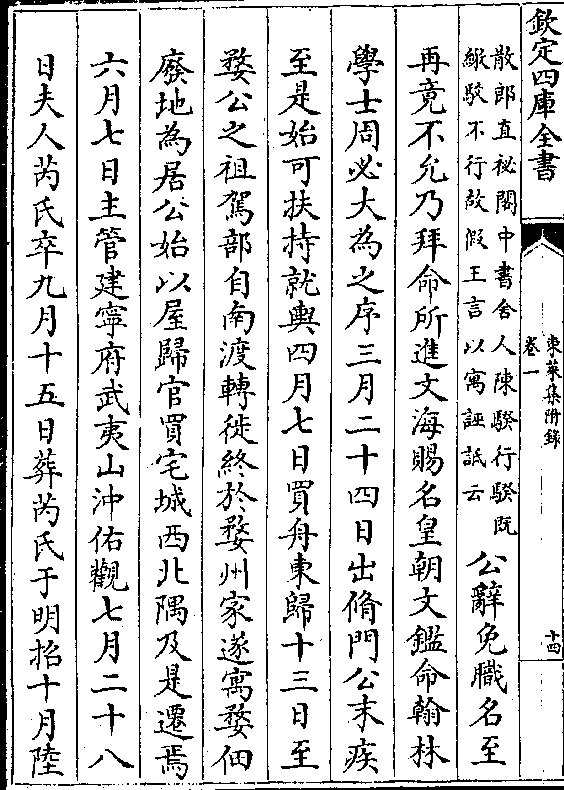 欽定四庫全書
東萊集附錄
卷一
十四
散郎直祕閣中書舍人陳騤行騤既
繳駮不行故假王言以寓誣詆云
公辭免職名至
再竟不允乃拜命所進文海賜名皇朝文鑑命翰林
學士周必大為之序三月二十四日出脩門公末疾
至是始可扶持就輿四月七日買舟東歸十三日至
婺公之祖駕部自南渡轉徙終於婺州家遂寓婺佃
廢地為居公始以屋歸官買宅城西北隅及是遷焉
六月七日主管建寧府武夷山沖佑觀七月二十八
日夫人芮氏卒九月十五日葬芮氏于明招十月陸